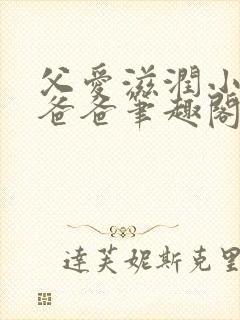 父愛滋潤小
爸爸筆趣閣
達芙妮斯克里